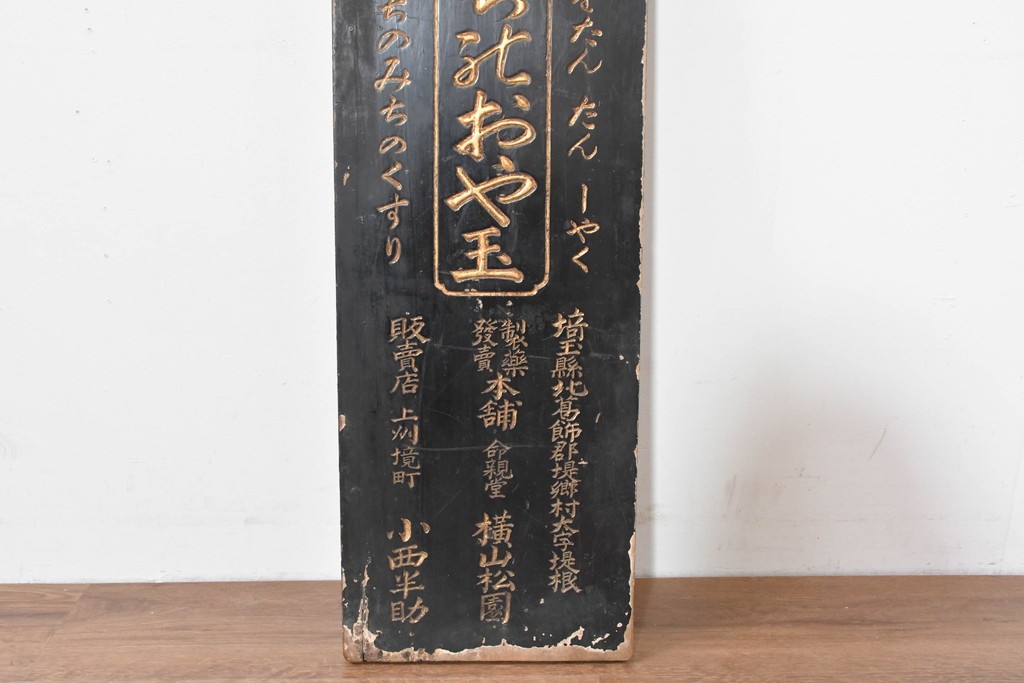 たん たん しやく
ち乃おや玉
ちのみちのくすり
埼玉縣北葛飾郡堤郷村大字堤根
製藥
發賣
本舗 命親堂 横山松園
販賣店 上州境町 小西半助